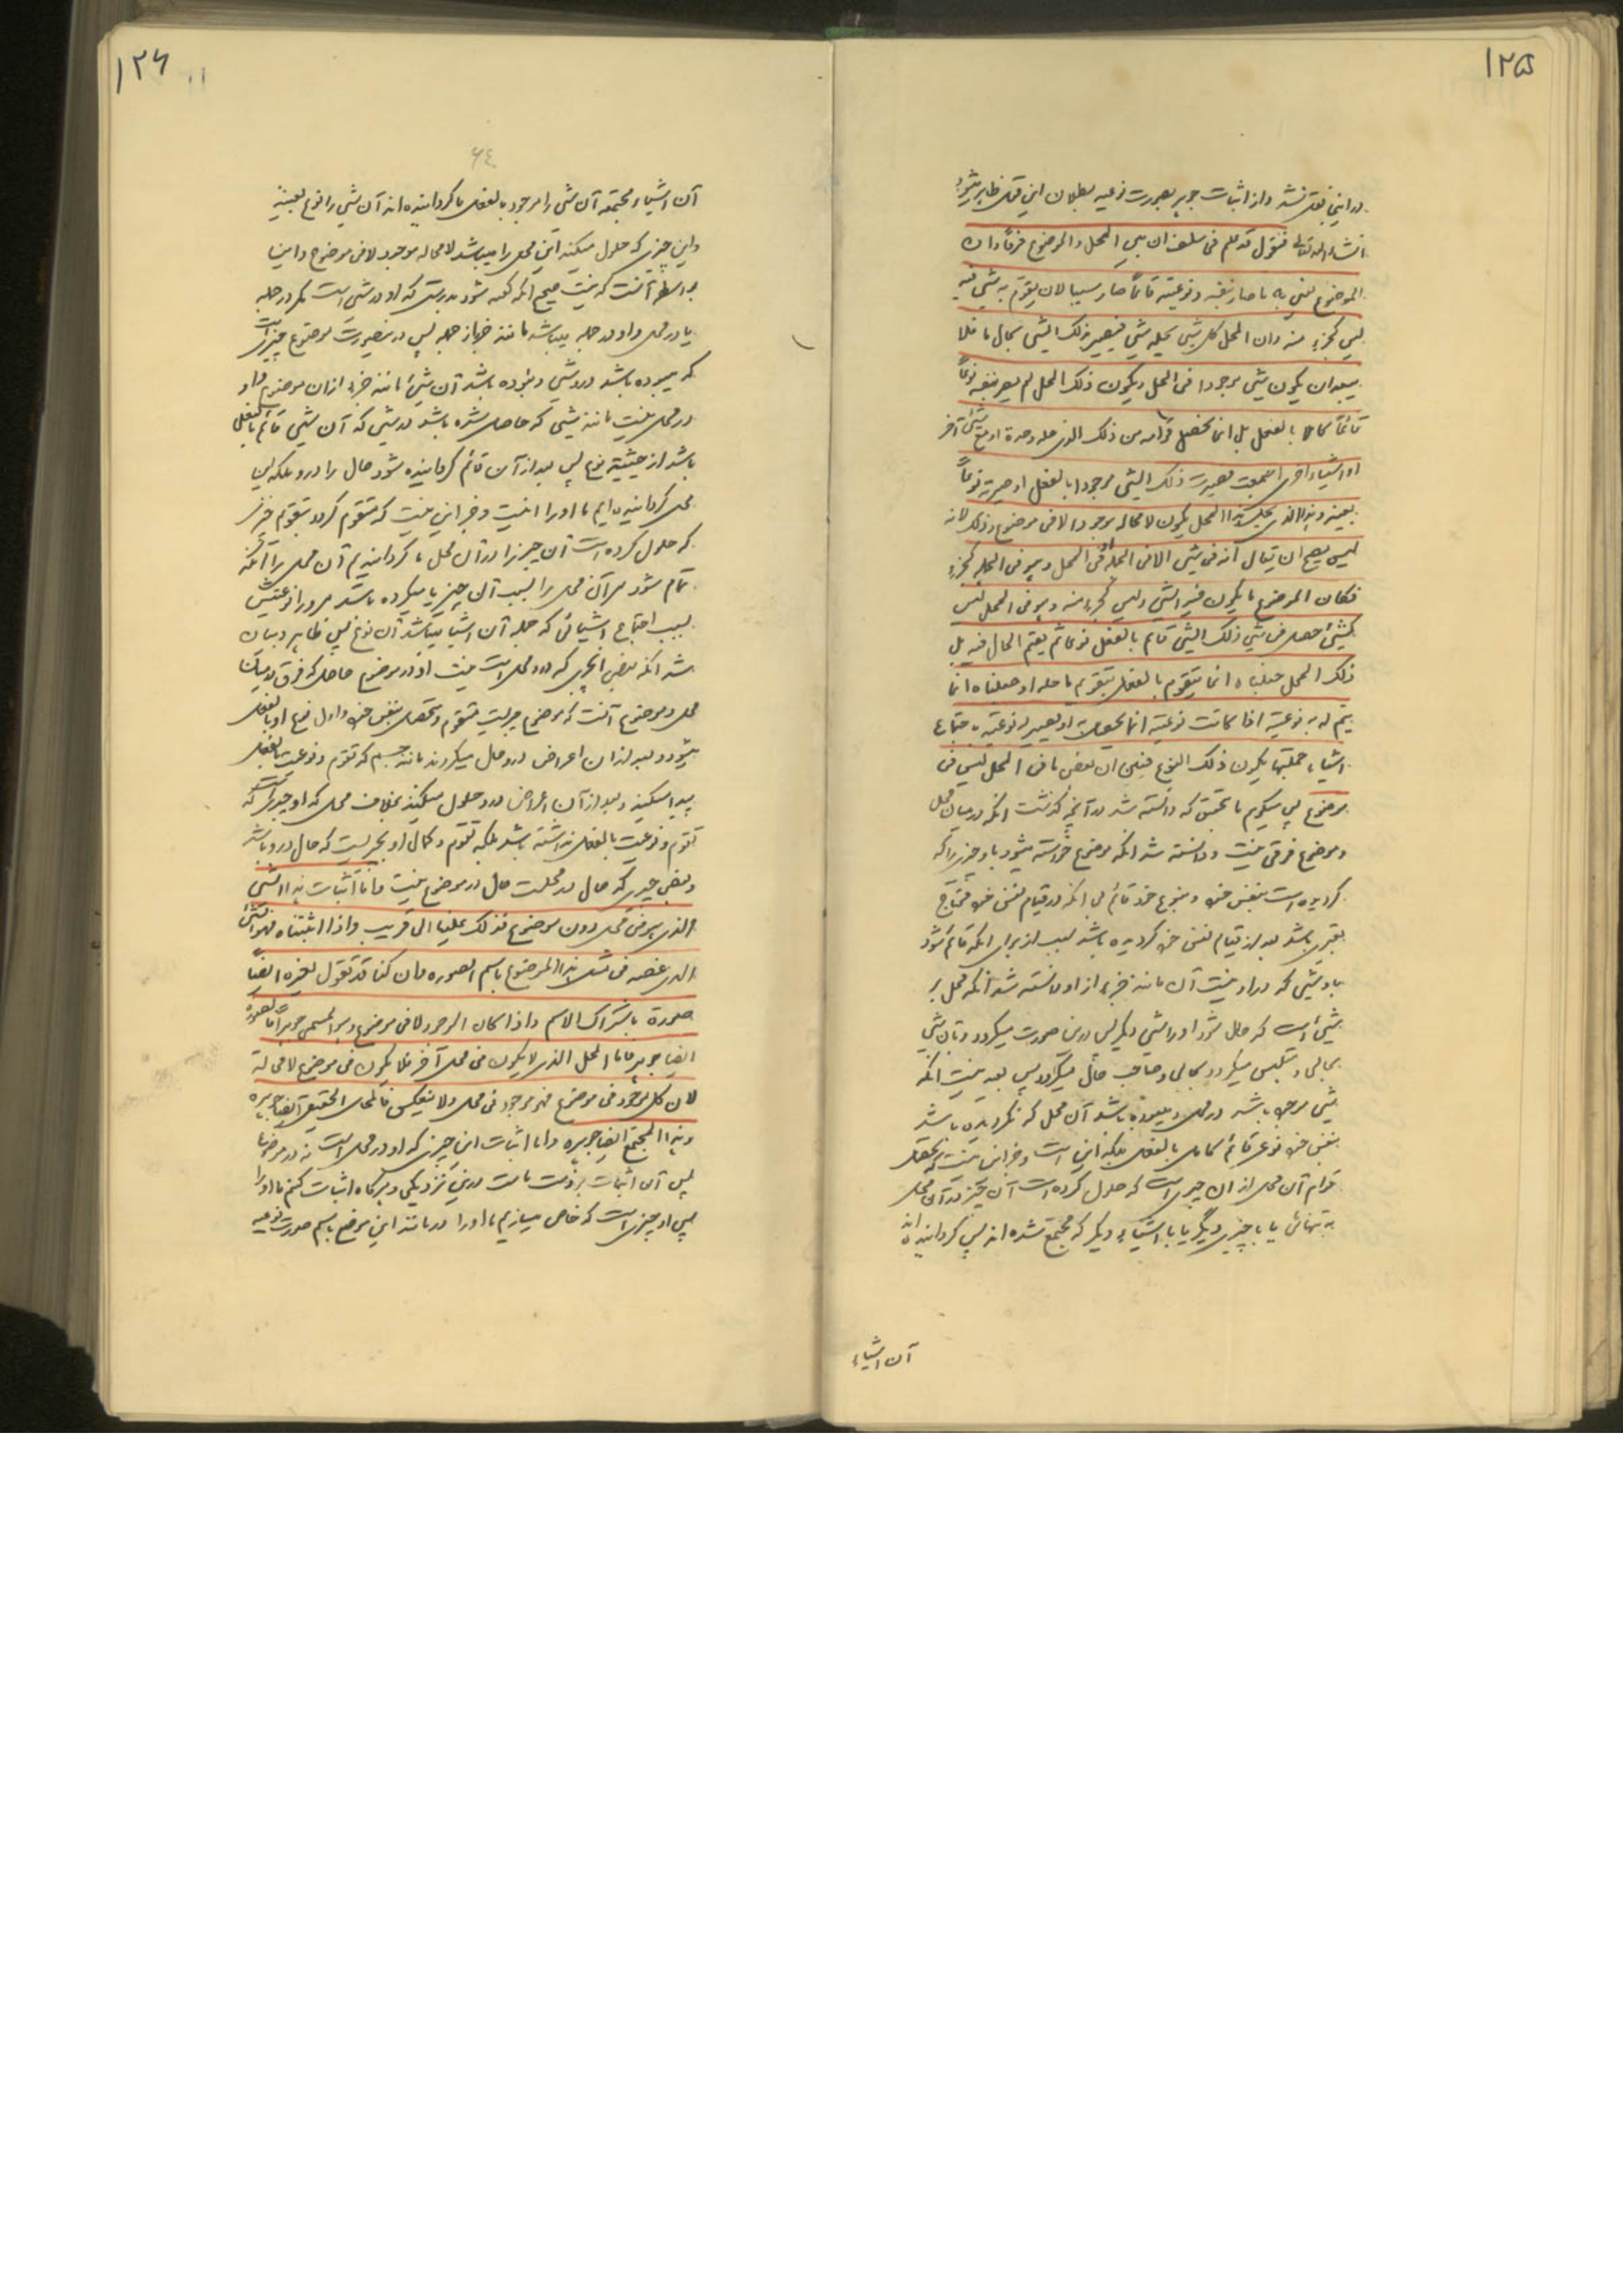 ١٢٥
در اینجا نقل نشد و از اثبات جوهر بصورت نوعیه بطلان این قول ظاهر میشود
انشاء الله تعالی فنقول قد علم فی ما سلف ان بین المحل و الموضوع فرقا و ان
الموضوع یعنی به ما صار بنفسه و نوعیته قائما ثم صار سببا لان یقوم به شیء فیه
لیس کجزء منه و ان المحل کل شیء یحله شیء فیصیر ذلک الشیء بحال ما فلا
یبعد ان یکون شیء موجودا فی المحل و یکون ذلک المحل لم یصر بنفسه نوعا
قائما کاملا بالفعل بل انما تحصل قوامه من ذلک الذی حله وحده او مع شیء آخر
او اشیاء اخری اجتمعت فصیرت ذلک الشیء موجودا بالفعل او صیرته نوعا
بعینه و هذا الذی یحل هذا المحل یکون لا محاله موجودا لا فی موضوع و ذلک لانه
لیس یصح ان یقال انه فی شیء الا فی الجمله او فی المحل و هو فی الجمله کجزء
فکان الموضوع ما یکون فیه الشیء و لیس کجزء منه و هو فی المحل لیس
کشیء حصل فی شیء ذلک الشیء قائم بالفعل نوعا ثم یقیم الحال فیه بل
ذلک المحل جعلناه انما یتقوم بالفعل بتقویم ما حله او جعلناه انما
یتم له به نوعیته اذا کانت نوعیته انما تحصل او یصیر له نوعیته باجتماع
اشیاء جملتها یکون ذلک النوع فبین ان بعض ما فی المحل لیس فی
موضوع پس میگویم بتحقیق که دانسته شد در آنچه گذشت انکه درمیان محل
و موضوع فرقی هست و دانسته شد انکه موضوع خواسته میشود باو چیزیرا که
گردیده است بنفس خود و بنوع خود قائم بی انکه در قیام نفس خود محتاج
بغیری باشد بعد از قیام نفس خود گردیده باشد سبب از برای انکه قائم شود
باو شیئی که در او نیست آن مانند جزء از او و دانسته شد انکه محل هر
شیئ است که حال شود او را شیئی دیگر پس درین صورت میگردد بآن شیئ
بحالی و متلبس میگردد بحالی و صاحب حال میگردد پس بعید نیست انکه
شیئ موجود باشد در محل و بوده باشد آن محل که نگردیده باشد
بنفس خود نوعی قائم کامل بالفعل بلکه این است و جز این نیست که تحصل
قوام آن محل از ان چیزیست که حلول کرده است آن چیز در آن محل
به تنهائی یا با چیزی دیگر یا با اشیاء دیگر که مجتمع شده اند پس گردانیده اند
آن اشیاء
١٢٦
٦٤
آن اشیاء مجتمعه آن شیئ را موجود بالفعل یا گردانیده اند آن شیئ را نوع بعینه
و این چیزی که حلول میکند این محل را میباشد لا محاله موجود لا فی موضوع و این
بواسطه آنست که نیست صحیح انکه گفته شود بدرستی که او در شیئی است مگر در جمله
یا در محل و او در جمله میباشد مانند جزء از جمله پس درینصورت موضوع چیزیست
که میبوده باشد در او شیئ و نبوده باشد آن شیئ مانند جزء از ان موضوع و او
در محل نیست مانند شیئی که حاصل شده باشد در شیئی که آن شیئ قائم بالفعل
باشد از حیثیت نوع پس بعد از آن قائم گردانیده شود حال را در او بلکه این
محل گردانیده ایم ما او را اینست و جز این نیست که متقوم گردد بتقویم چیزی
که حلول کرده است آن چیز را در آن محل یا گردانیدیم آن محل را آنکه
تمام شود مر آن محل را بسبب آن چیز یا میگردیده باشد مر او را نوعیتش
بسبب اجتماع اشیائی که جمله آن اشیا میباشد آن نوع پس ظاهر و بیان
شد انکه بعض آنچیزی که در محل است نیست او در موضوع حاصل که فرق درمیان
محل و موضوع آنست که موضوع چیزیست متقوم و متحصل بنفس خود و اول نوع او بالفعل
میشود و بعد از ان اعراض در او حال میگردند مانند جسم که تقوم و نوعیت بالفعل
پیدا میکند و بعد از آن اعراض در او حلول میکنند بخلاف محل که او چیزیست که
تقوم و نوعیت بالفعل نداشته باشد بلکه تقوم و کمال او بچیزیست که حال در او باشد
و بعض چیزی که حال در محلست حال در موضوع نیست و اما اثبات هذا الشیء
الذی هو فی محل دون موضوع فذلک علینا الی قریب و اذا اثبتناه فهو الشیء
الذی یخصه فی مثل هذا الموضوع باسم الصوره و ان کنا قد نقول لغیره ایضا
صورة باشتراک الاسم و اذا کان الموجود لا فی موضوع هو المسمی جوهرا فالصورة
ایضا جوهر فاما المحل الذی لا یکون فی محل آخر فلا یکون فی موضوع لا محالة
لان کل موجود فی موضوع فهو موجود فی محل و لا ینعکس فالمحل الحقیقی ایضا جوهر
و هذا المجتمع ایضا جوهر و اما اثبات این چیزی که او در محل است نه در موضوع
پس آن اثبات بر ذمت ماست درین نزدیکی و هرگاه اثبات کنیم ما او را
پس او چیزیست که خاص میسازیم ما او را در مانند این موضع باسم صورت نوعیه